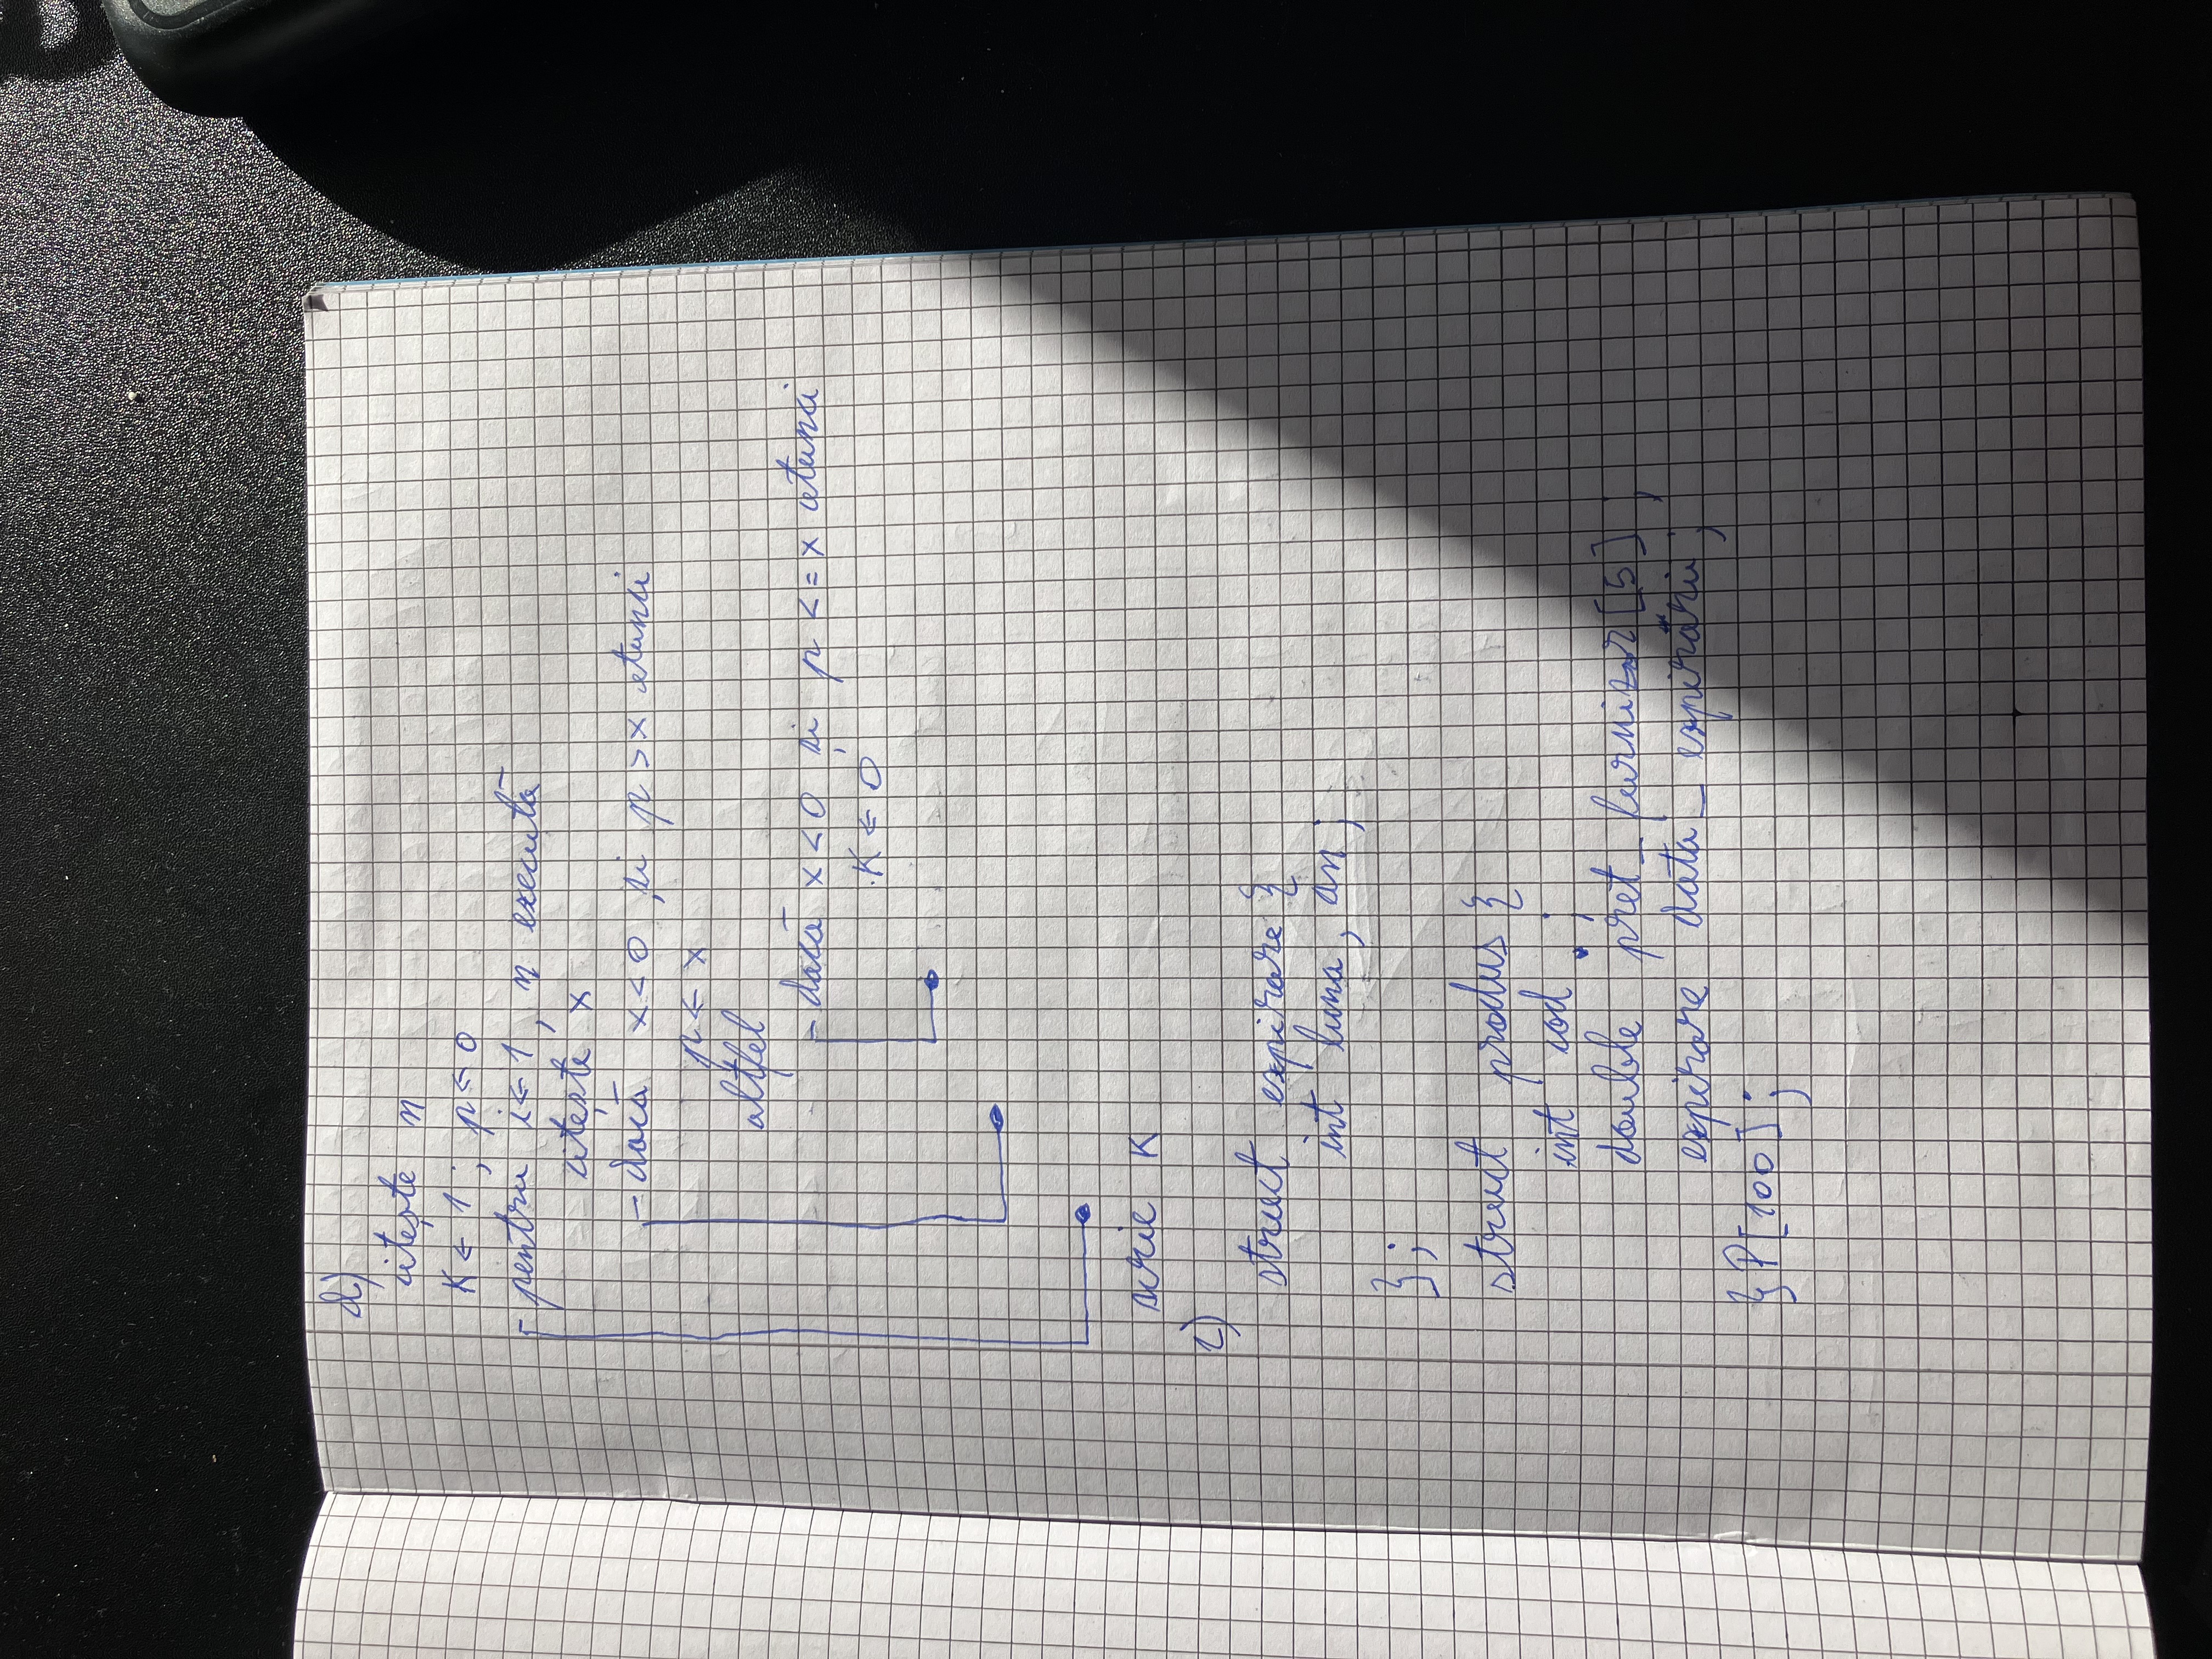 d)
citește n
K ← 1 ; p ← 0
pentru i ← 1, n execută
citește x
dacă x < 0 și p > x atunci
p ← x
altfel
dacă x < 0 și p <= x atunci
K ← 0
scrie K
2)
struct expirare {
int luna, an;
};
struct produs {
int cod ;
double pret_furnizor[5] ;
expirare data_expirării;
} P[100] ;